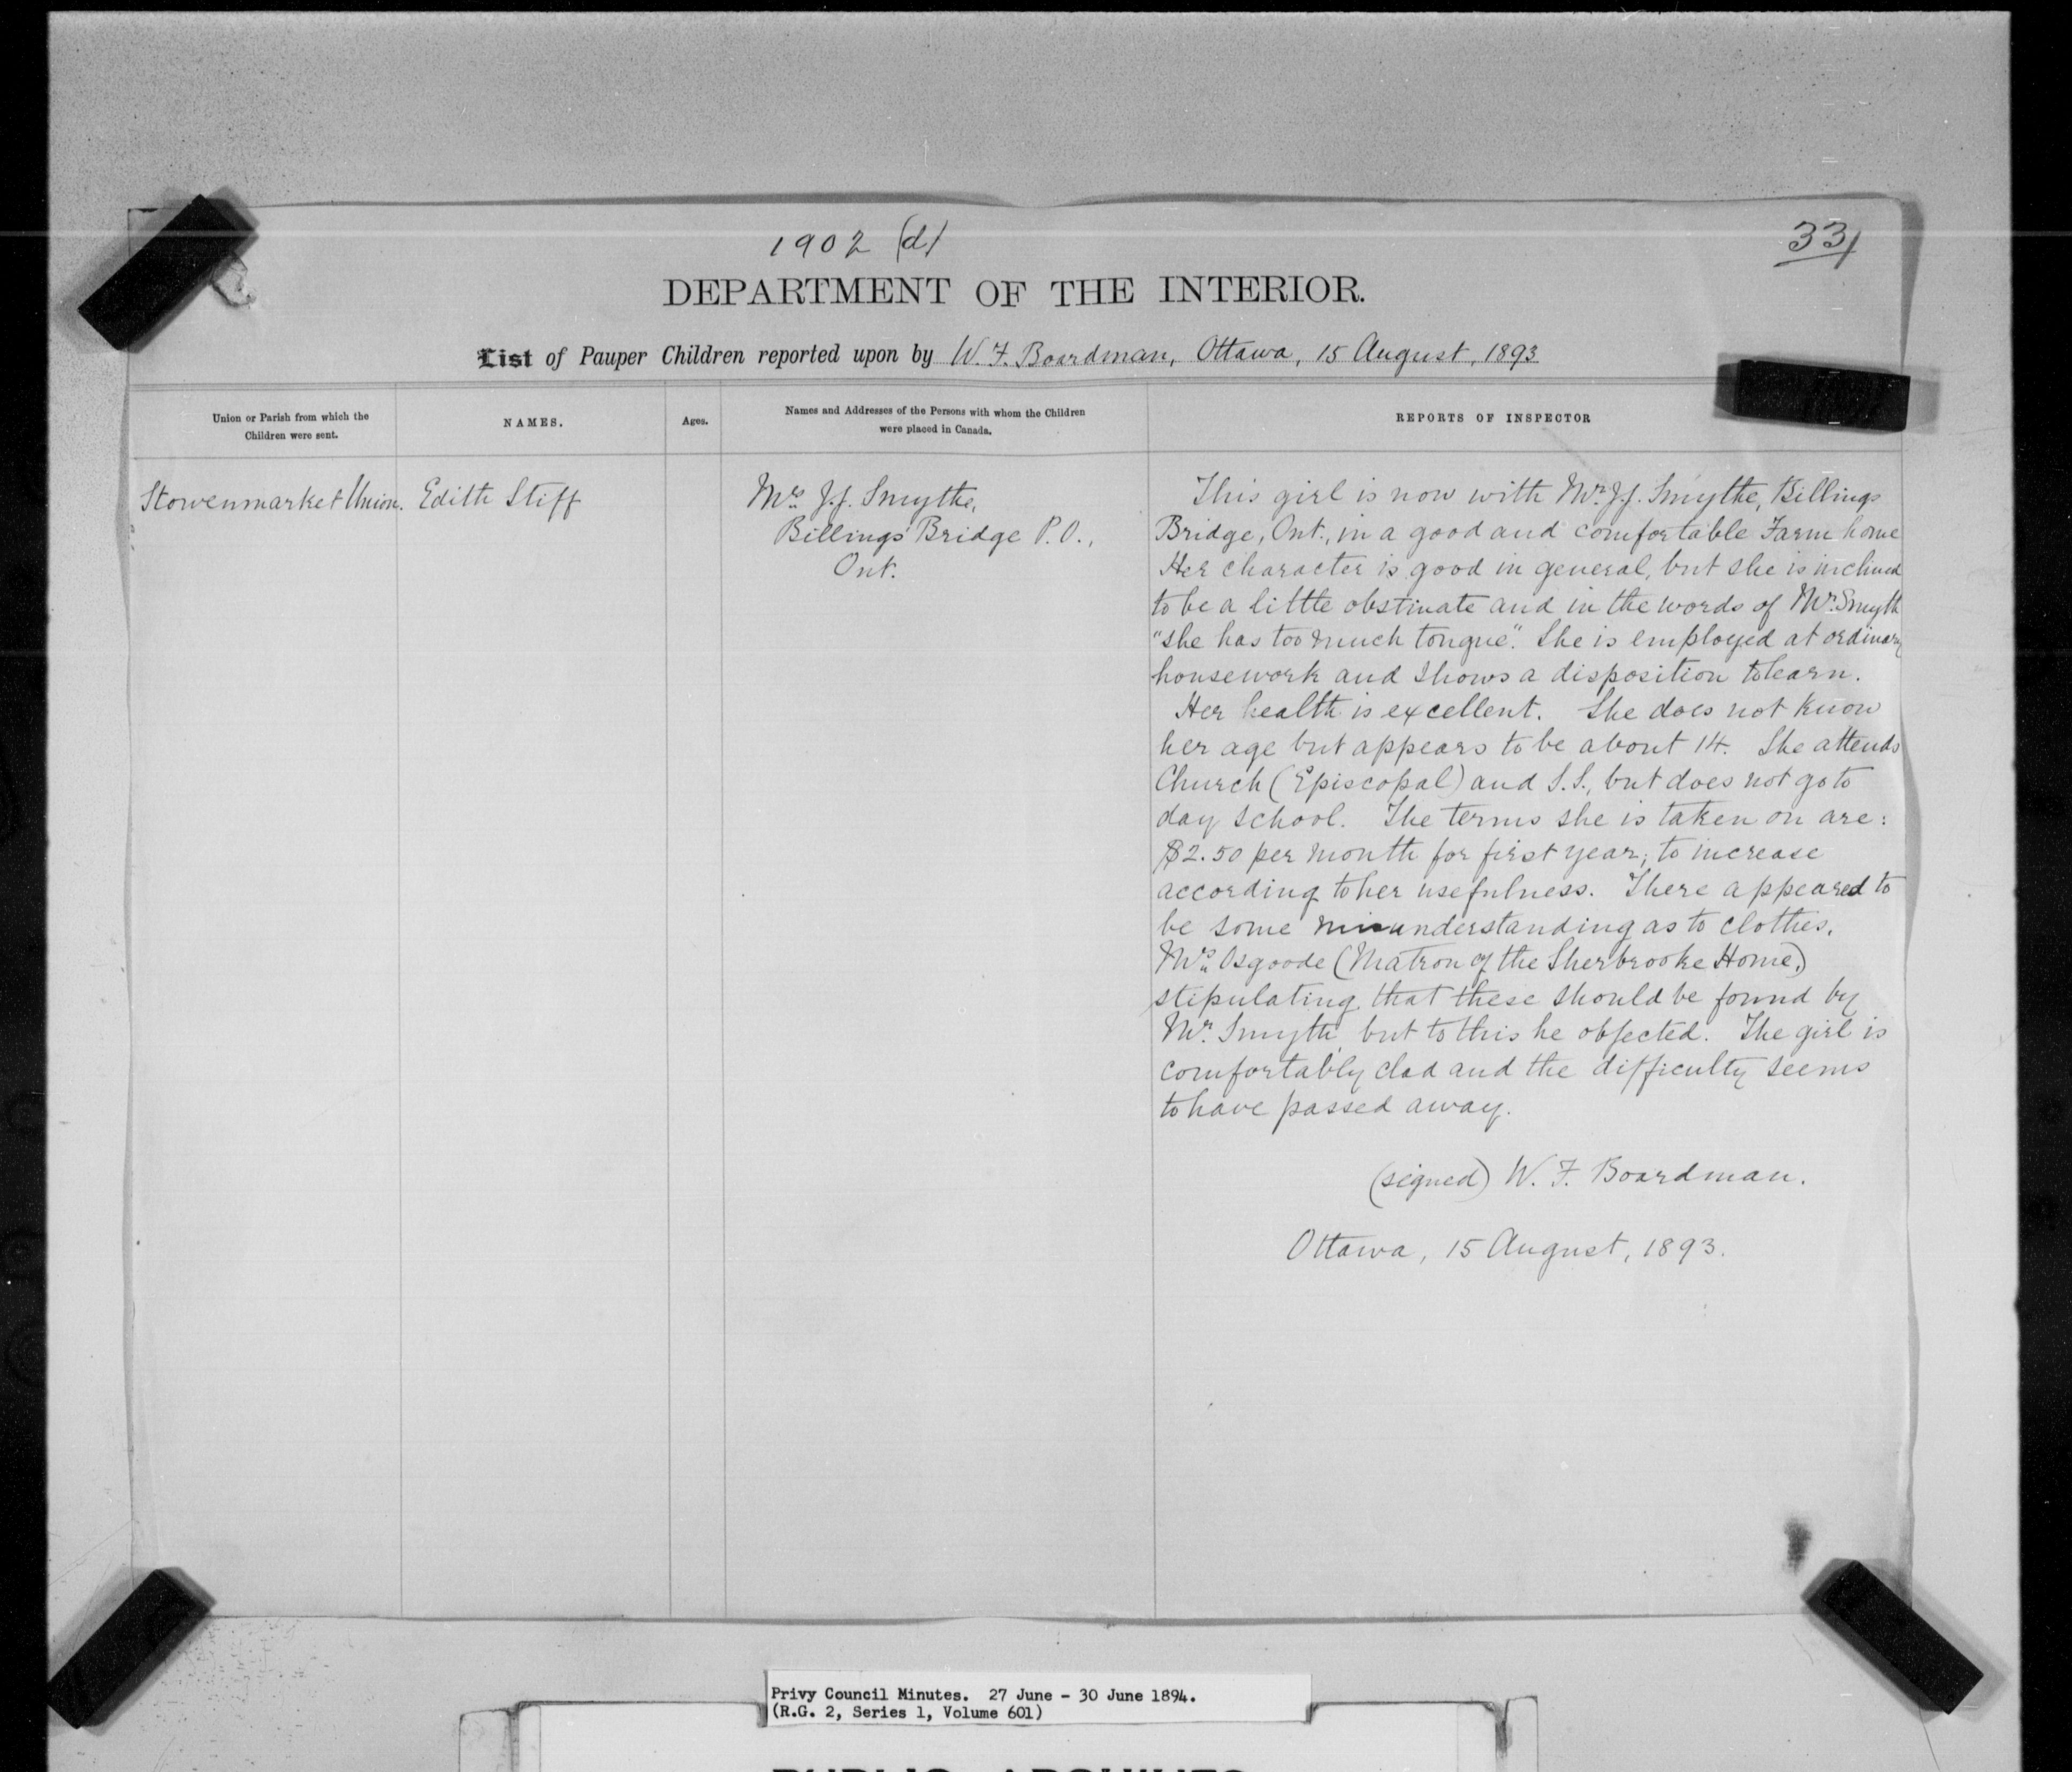 1902 (d)
33/
DEPARTMENT OF THE INTERIOR.
List of Pauper Children reported upon by W. F. Boardman, Ottawa, 15 August, 1893
Union or Parish from which the
Children were sent.
NAMES.
Ages.
Names and Addresses of the Persons with whom the Children
were placed in Canada.
REPORTS OF INSPECTOR
Stowenmarket Union.
Edith Stiff
Mrs J. J. Smythe,
Billings' Bridge P.O.,
Ont.
This girl is now with Mr. J. J. Smythe, Billings
Bridge, Ont., in a good and comfortable Farm home
Her character is good in general, but she is inclined
to be a little obstinate and in the words of Mr. Smyth
"she has too much tongue". She is employed at ordinary
housework and shows a disposition to learn.
Her health is excellent. She does not know
her age but appears to be about 14. She attends
Church (Episcopal) and S.S., but does not go to
day school. The terms she is taken on are:
$2.50 per month for first year; to increase
according to her usefulness. There appeared to
be some misunderstanding as to clothes,
Mrs. Osgoode (Matron of the Sherbrooke Home,)
stipulating that these should be found by
Mr. Smyth, but to this he objected. The girl is
comfortably clad and the difficulty seems
to have passed away.
(signed) W. F. Boardman.
Ottawa, 15 August, 1893.
Privy Council Minutes. 27 June - 30 June 1894.
(R.G. 2, Series 1, Volume 601)
PUBLIC ARCHIVES